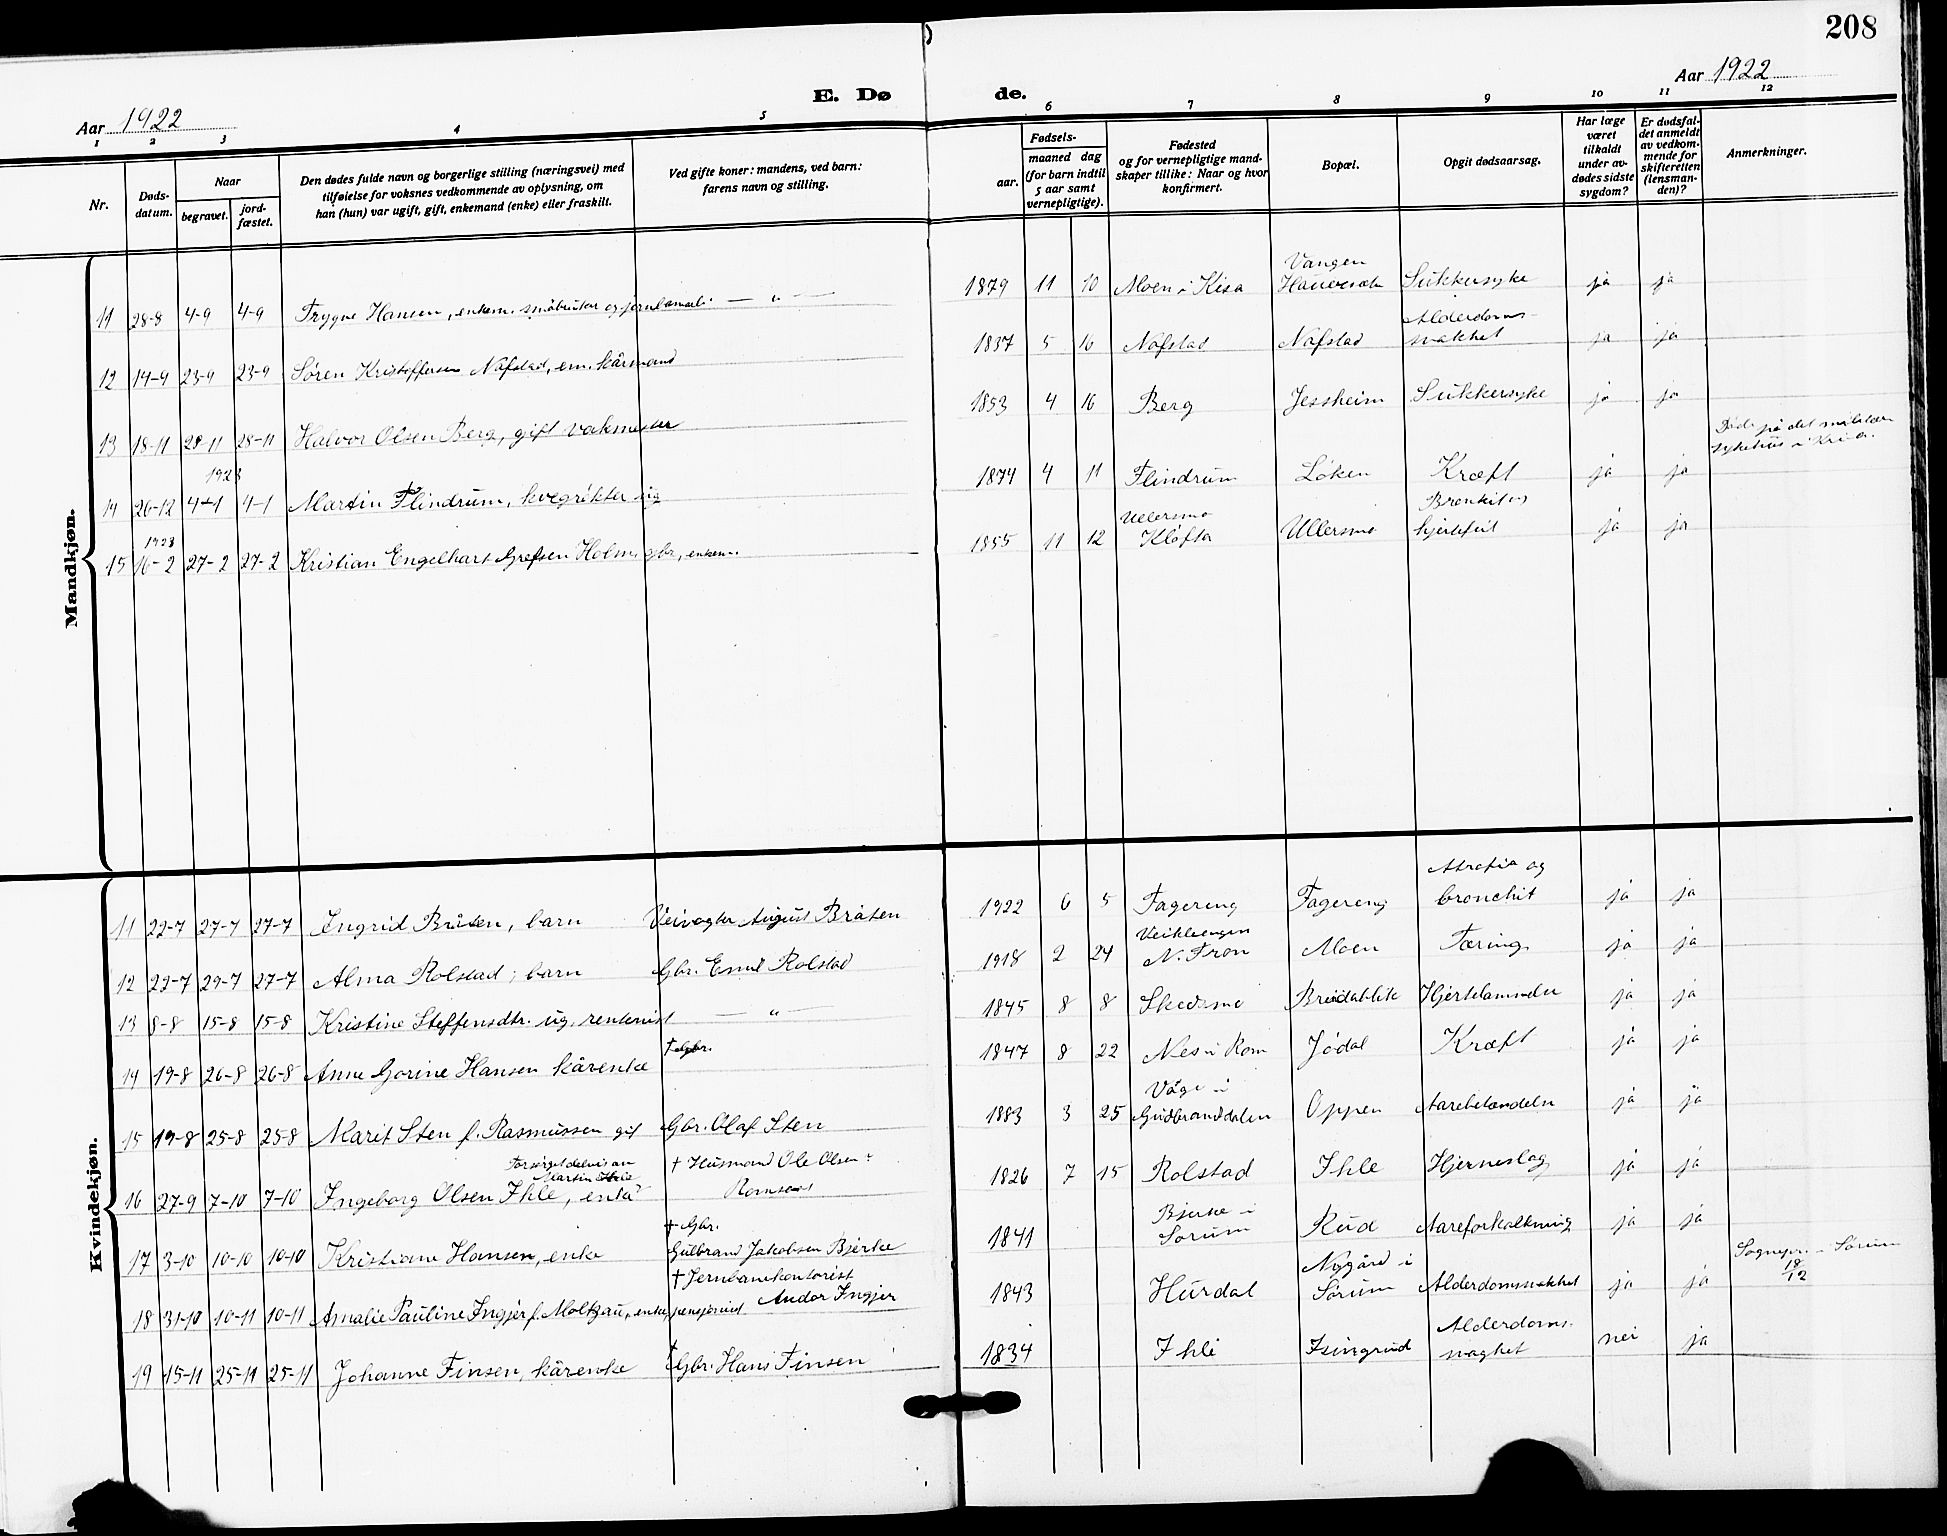 208
Aar 1922
E. Dø de.
Aar 1922
1 2 3 4 5 6 7 8 9 10 11 12
Nr.
Døds-
datum.
Naar
begravet.
jord-
fæstet.
Den dødes fulde navn og borgerlige stilling (næringsvei) med
tilføielse for voksnes vedkommende av oplysning, om
han (hun) var ugift, gift, enkemand (enke) eller fraskilt.
Ved gifte koner: mandens, ved barn:
farens navn og stilling.
Fødsels-
aar.
maaned dag
(for barn indtil
5 aar samt
vernepligtige).
Fødested
og for vernepligtige mand-
skaper tillike: Naar og hvor
konfirmert.
Bopæl.
Opgit dødsaarsag.
Har læge
været
tilkaldt
under av-
dødes sidste
sygdom?
Er dødsfal-
det anmeldt
av vedkom-
mende for
skifteretten
(lensman-
den)?
Anmerkninger.
Mandkjøn.
Vangen
11 28-8 4-9 4-9 Trygve Hansen, enkem. småbruker og — " — 1879 11 10 Moen i Kisa Sukkersyke ja ja
Alderdoms-
12 14-9 23-9 23-9 Søren Kristoffersen Nafstad, em. kårmand 1837 5 16 Nafstad Nafstad svakhet ja ja
13 18-11 28-11 28-11 Halvor Olsen Berg, gift vakmester 1853 4 16 Berg Jessheim Sukkersyke ja ja
1923
14 26-12 4-1 4-1 Martin Flindrum, kvegrøkter ug 1874 4 11 Flindrum Løken Kræft ja ja Døde på det militære
sykehus i Kr.a.
1923 Ullersmo Bronkit og
15 16-2 27-2 27-2 Kristian Engelhart Grefsen Holm, gbr, enkem. 1855 11 12 Kløfta Ullersmo hjertefeil ja ja
Kvindekjøn.
Atrofia og
11 22-7 27-7 27-7 Ingrid Bråten, barn Veivogter August Bråten 1922 6 5 Fagereng Fagereng bronchit ja ja
12 22-7 29-7 27-7 Alma Rolstad, barn Gbr. Emil Rolstad 1918 2 24 N. Fron Moen Tæring ja ja
13 8-8 15-8 15-8 Kristine Steffensdtr. ug. rentenist — " — 1845 8 8 Skedsmo Breidablik Hjertelammelse ja ja
† Gbr.
14 19-8 26-8 26-8 Anne Gorine Hansen kårenke 1847 8 22 Nes i Rom Jødal Kræft ja ja
Våge i
15 19-8 25-8 25-8 Marit Sten f. Rasmussen gif Gbr. Olaf Sten 1883 3 25 Gudbrandsdalen Oppen Aarebetændelse ja ja
Forsørget delvis av
Martin Ihle † Husmand Ole Olsen
16 27-9 7-10 7-10 Ingeborg Olsen Ihle, enke Romsaas 1826 7 15 Rolstad Ihle Hjerneslag ja ja
† Gbr. Bjerke i
17 3-10 10-10 10-10 Kristiane Hansen, enke Gulbrand Jakobsen Bjerke 1841 Sørum Rud Aareforkalkning ja ja
† Jernbanekontorist Nygård i Sognepr. i Sørum
18 31-10 10-11 10-11 Amalie Pauline Ingier f. Moltzau, enke, pensjonist Andor Ingier 1843 Hurdal Sørum Alderdomssvakhet ja ja 18/12
Alderdoms-
19 15-11 25-11 25-11 Johanne Finsen, kårenke † Gbr. Hans Finsen 1834 Ihle Isingrud svaghet nei ja